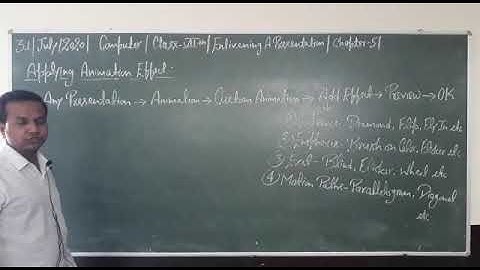 31/July/2020/ Computer/ Class-VIIth/ Enlivening A Presentation/ Chapter-5/
Applying Animation Effect.
Any Presentation → Animation → Custom Animation → Add Effect → Preview → OK
Diamond, Flip, Fly In etc
② Emphasis- Brush on Color, etc
③ Exit - Blind, wheel etc
④ Motion Paths- Parallelogram, Diagonal
etc